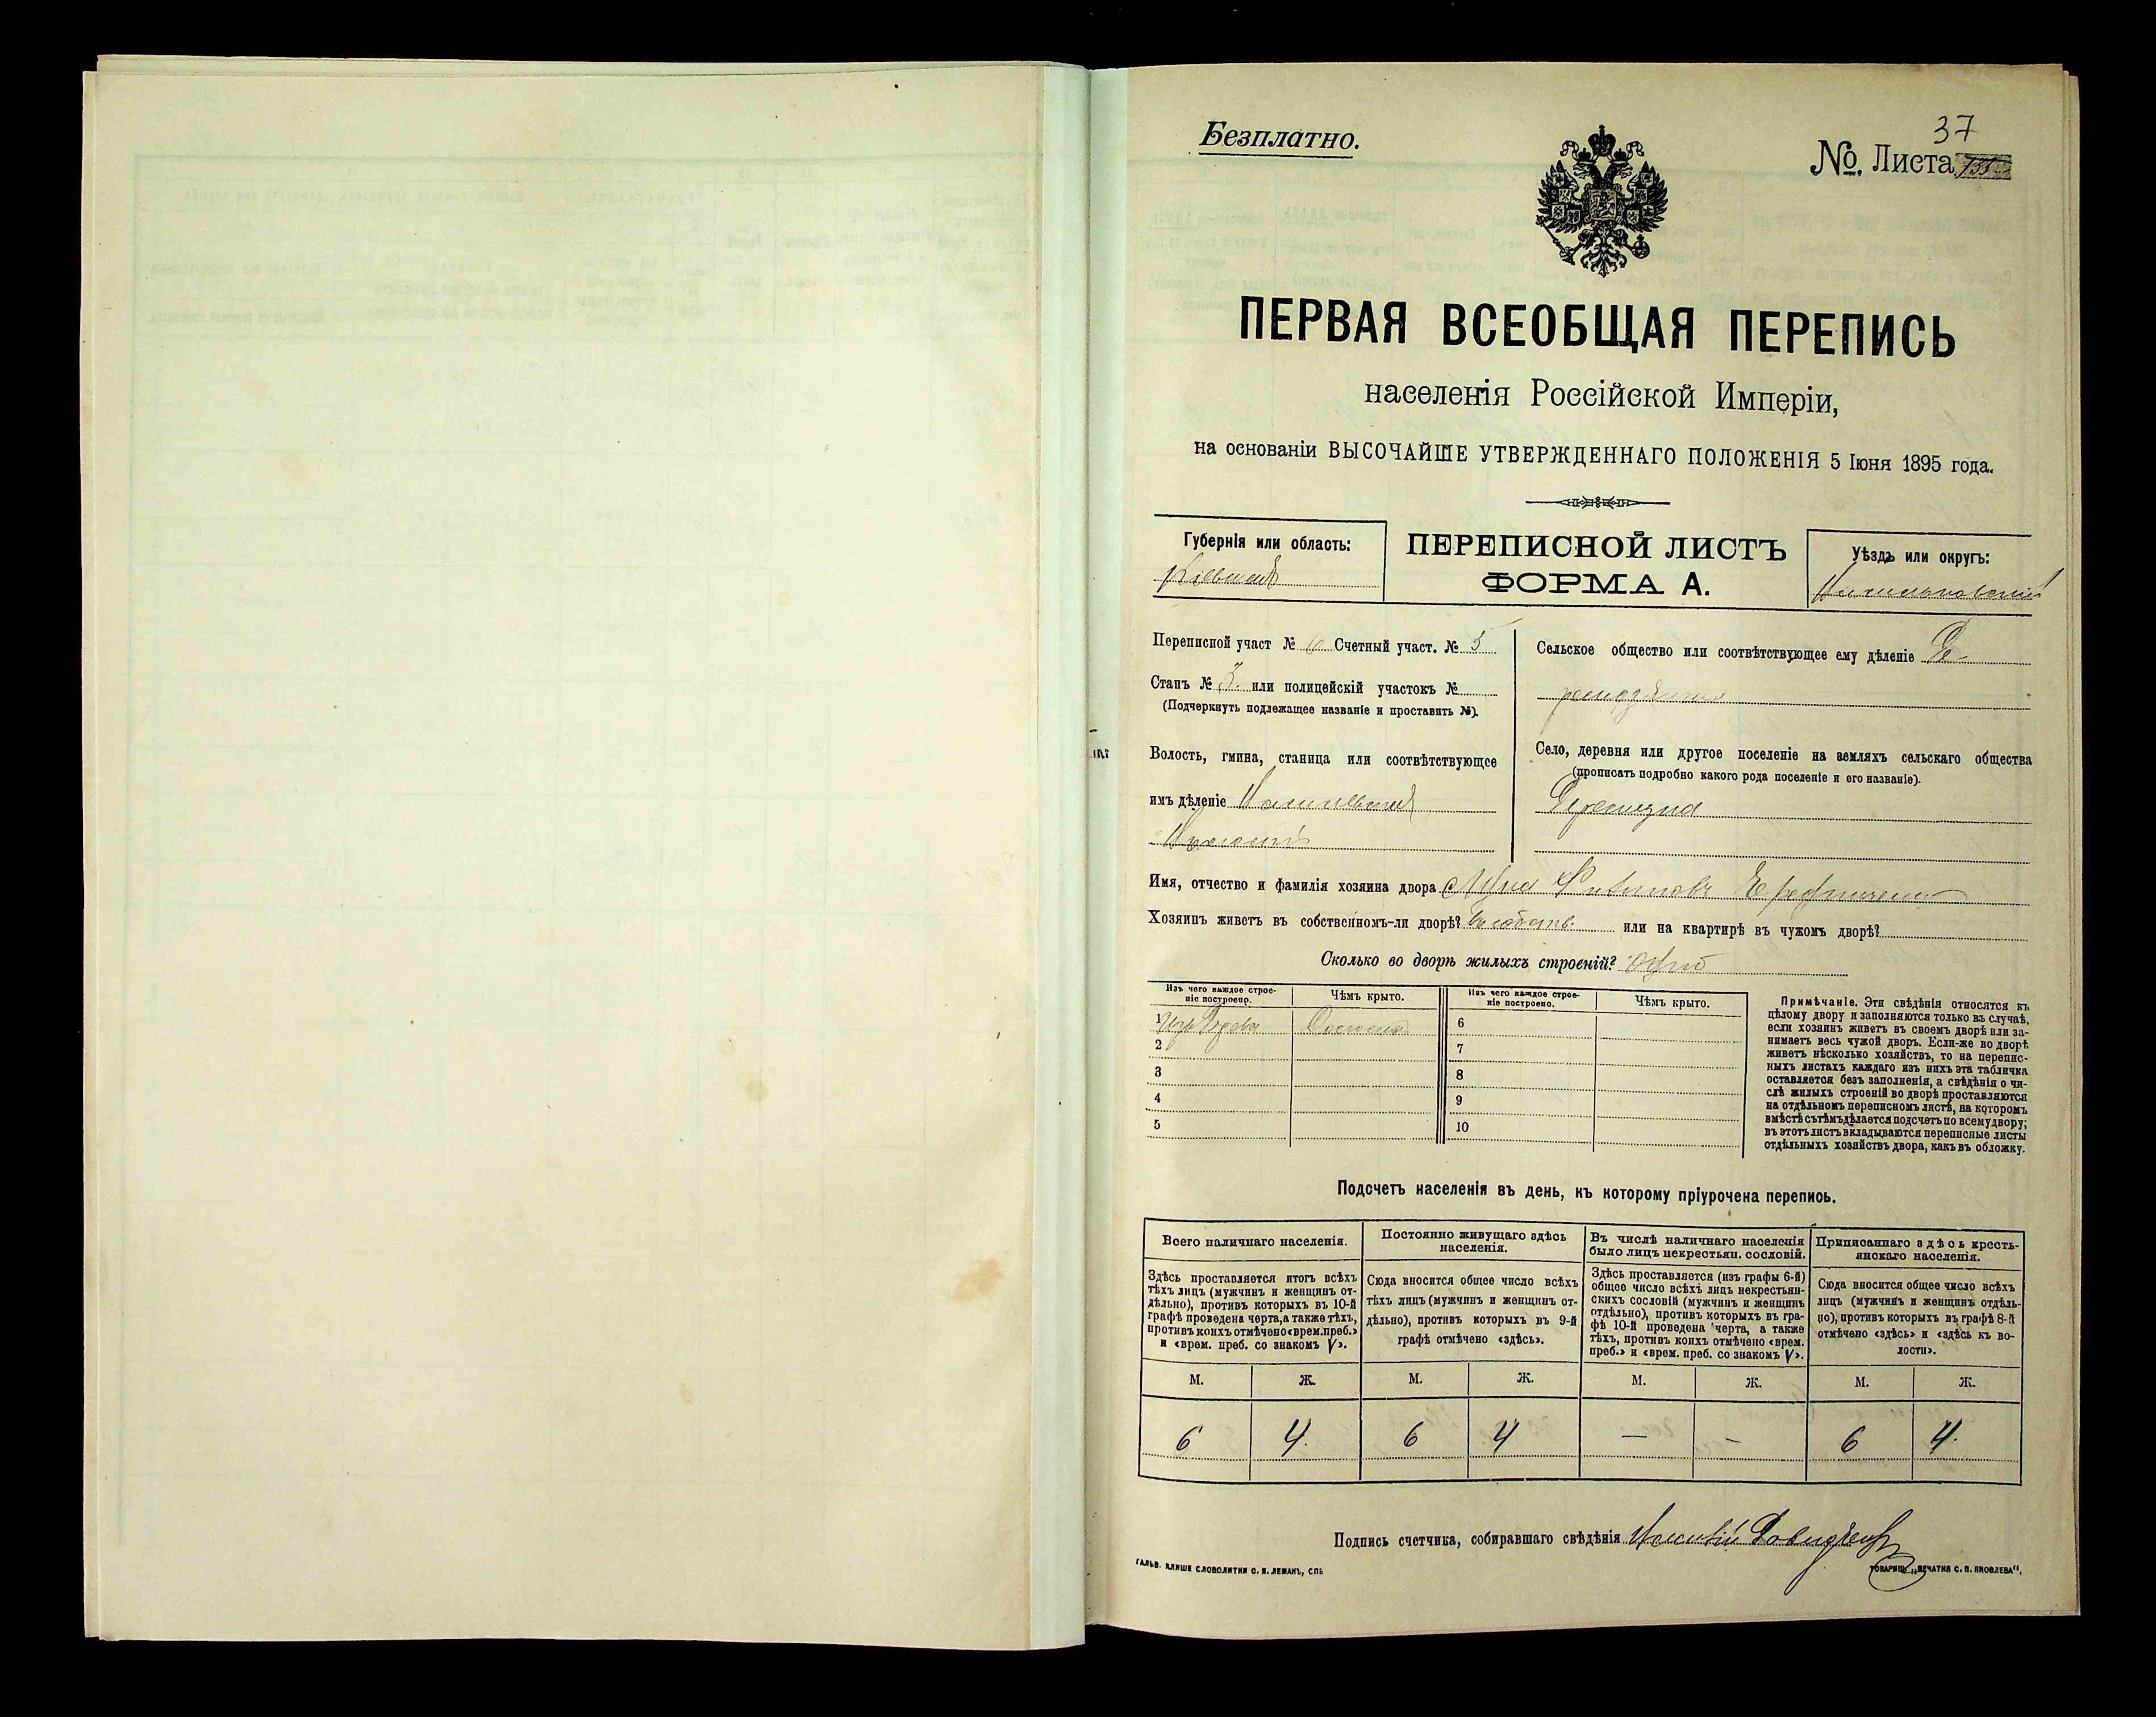 Безплатно.
37
№. Листа
ПЕРВАЯ ВСЕОБЩАЯ ПЕРЕПИСЬ
населенія Россійской Имперіи,
на основаніи ВЫСОЧАЙШЕ УТВЕРЖДЕННАГО ПОЛОЖЕНІЯ 5 Іюня 1895 года.
Губернія или область:
Кіевская
ПЕРЕПИСНОЙ ЛИСТЪ
ФОРМА А.
Уѣздъ или округъ:
Переписной участ № 6 Счетный участ. № 5
Станъ № 3. или полицейскій участокъ №
(Подчеркнуть подлежащее названіе и проставить №).
Волость, гмина, станица или соотвѣтствующее
имъ дѣленіе
Сельское общество или соотвѣтствующее ему дѣленіе
Село, деревня или другое поселеніе на земляхъ сельскаго общества
(прописать подробно какого рода поселеніе и его названіе).
Имя, отчество и фамилія хозяина двора
Хозяинъ живетъ въ собственномъ-ли дворѣ? въ собств. или на квартирѣ въ чужомъ дворѣ?
Сколько во дворѣ жилыхъ строеній? Одно
Изъ чего каждое строе-
ніе построено.
Чѣмъ крыто.
Изъ чего каждое строе-
ніе построено.
Чѣмъ крыто.
1 Изъ дерева Соломою 6
2 7
3 8
4 9
5 10
Примѣчаніе. Эти свѣдѣнія относятся къ
цѣлому двору и заполняются только въ случаѣ,
если хозяинъ живетъ въ своемъ дворѣ или за-
нимаетъ весь чужой дворъ. Если-же во дворѣ
живетъ нѣсколько хозяйствъ, то на перепис-
ныхъ листахъ каждаго изъ нихъ эта табличка
оставляется безъ заполненія, а свѣдѣнія о чи-
слѣ жилыхъ строеній во дворѣ проставляются
на отдѣльномъ переписномъ листѣ, на которомъ
вмѣстѣ съ тѣмъ дѣлается подсчетъ по всему двору;
въ этотъ листъ вкладываются переписные листы
отдѣльныхъ хозяйствъ двора, какъ въ обложку.
Подсчетъ населенія въ день, къ которому пріурочена перепись.
Всего наличнаго населенія.
Здѣсь проставляется итогъ всѣхъ
тѣхъ лицъ (мужчинъ и женщинъ от-
дѣльно), противъ которыхъ въ 10-й
графѣ проведена черта, а также тѣхъ,
противъ коихъ отмѣчено «врем. преб.»
и «врем. преб. со знакомъ V».
Постоянно живущаго здѣсь
населенія.
Сюда вносится общее число всѣхъ
тѣхъ лицъ (мужчинъ и женщинъ от-
дѣльно), противъ которыхъ въ 9-й
графѣ отмѣчено «здѣсь».
Въ числѣ наличнаго населенія
было лицъ некрестьян. сословій.
Здѣсь проставляется (изъ графы 6-й)
общее число всѣхъ лицъ некрестьян-
скихъ сословій (мужчинъ и женщинъ
отдѣльно), противъ которыхъ въ гра-
фѣ 10-й проведена черта, а также
тѣхъ, противъ коихъ отмѣчено «врем.
преб.» и «врем. преб. со знакомъ V».
Приписаннаго здѣсь кресть-
янскаго населенія.
Сюда вносится общее число всѣхъ
лицъ (мужчинъ и женщинъ отдѣль-
но), противъ которыхъ въ графѣ 8-й
отмѣчено «здѣсь» и «здѣсь къ во-
лости».
М. Ж. М. Ж. М. Ж. М. Ж.
6 4. 6 4 — — 6 4.
Подпись счетчика, собиравшаго свѣдѣнія
ГАЛЬВ. КЛИШЕ СЛОВОЛИТНИ О. И. ЛЕМАНЪ, СПБ
ТОВАРИЩ. „ПЕЧАТНЯ С. П. ЯКОВЛЕВА“.